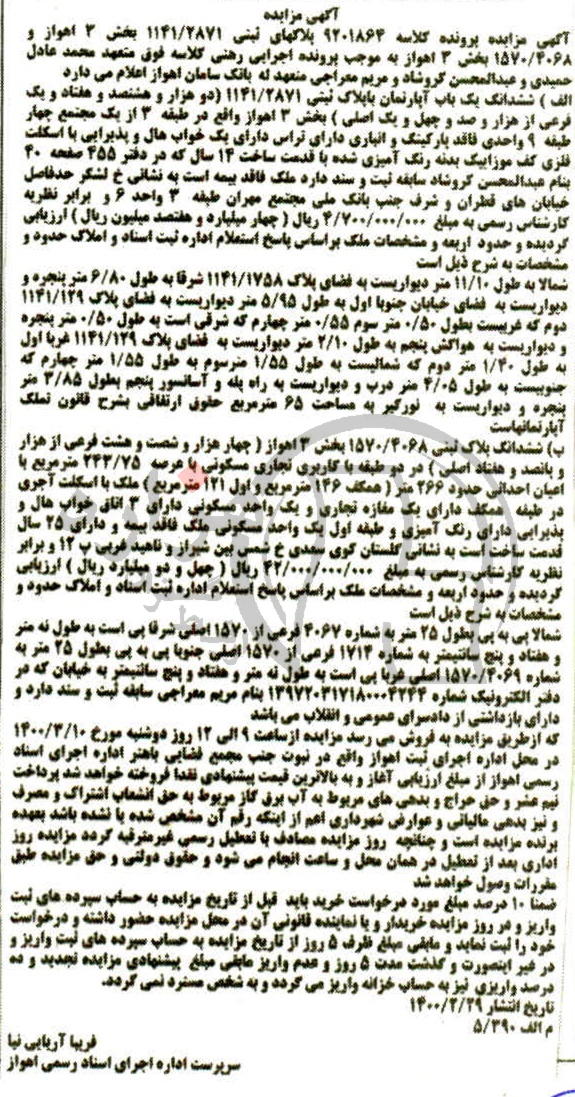 آگهی مزایده
آگهی مزایده پرونده کلاسه ۹۲۰۱۸۶۴ پلاکهای ثبتی ۱۱۴۱/۲۸۷۱ بخش ۳ اهواز و
۱۵۷۰/۴۰۶۸ بخش ۳ اهواز به موجب پرونده اجرایی رهنی کلاسه فوق متعهد محمد عادل
حمیدی و عبدالمحسن گروشاد و مریم معراجی متعهد له بانک سامان اهواز اعلام می دارد
الف ) ششدانگ یک باب آپارتمان باپلاک ثبتی ۱۱۴۱/۲۸۷۱ (دو هزار و هشتصد و هفتاد و یک
فرعی از هزار و صد و چهل و یک اصلی ) بخش ۳ اهواز واقع در طبقه ۳ از یک مجتمع چهار
طبقه ۹ واحدی فاقد پارکینگ و انباری دارای تراس دارای یک خواب هال و پذیرایی با اسکلت
فلزی کف موزاییک بدنه رنگ آمیزی شده با قدمت ساخت ۱۴ سال که در دفتر ۴۵۵ صفحه ۴۰
بنام عبدالمحسن گروشاد سابقه ثبت و سند دارد ملک فاقد بیمه است به نشانی خ لشگر حدفاصل
خیابان های قطران و شرف جنب بانک ملی مجتمع مهران طبقه ۳ واحد ۶ و برابر نظریه
کارشناس رسمی به مبلغ ۴/۷۰۰/۰۰۰/۰۰۰ ریال ( چهار میلیارد و هفتصد میلیون ریال ) ارزیابی
گردیده و حدود اربعه و مشخصات ملک براساس پاسخ استعلام اداره ثبت اسناد و املاک حدود و
مشخصات به شرح ذیل است
شمالا به طول ۱۱/۱۰ متر دیواریست به فضای پلاک ۱۱۴۱/۱۷۵۸ شرقا به طول ۶/۸۰ متر پنجره و
دیواریست به فضای خیابان جنوبا اول به طول ۵/۹۵ متر دیواریست به فضای پلاک ۱۱۴۱/۱۲۹
دوم که غربیست بطول ۰/۵۰ متر سوم ۰/۵۵ متر چهارم که شرقی است به طول ۰/۵۰ متر پنجره
و دیواریست به هواکش پنجم به طول ۲/۱۰ متر دیواریست به فضای پلاک ۱۱۴۱/۱۲۹ غربا اول
به طول ۱/۴۰ متر دوم که شمالیست به طول ۱/۵۵ مترسوم به طول ۱/۵۵ متر چهارم که
جنوبیست به طول ۴/۰۵ متر درب و دیواریست به راه پله و آسانسور پنجم بطول ۳/۸۵ متر
پنجره و دیواریست به نورگیر به مساحت ۶۵ مترمربع حقوق ارتفاقی بشرح قانون تملک
آپارتمانهاست
ب) ششدانگ پلاک ثبتی ۱۵۷۰/۴۰۶۸ بخش ۳ اهواز ( چهار هزار و شصت و هشت فرعی از هزار
و پانصد و هفتاد اصلی ) در دو طبقه با کاربری تجاری مسکونی با عرصه ۲۴۳/۷۵ مترمربع با
اعیان احداثی حدود ۲۶۶ متر ( همکف ۱۴۶ مترمربع و اول ۱۲۱ مترمربع ) ملک با اسکلت آجری
در طبقه همکف دارای یک مغازه تجاری و یک واحد مسکونی دارای ۳ اتاق خواب هال و
پذیرایی دارای رنگ آمیزی و طبقه اول یک واحد مسکونی ملک فاقد بیمه و دارای ۲۵ سال
قدمت ساخت است به نشانی گلستان کوی سعدی خ شمس بین شیراز و ناهید غربی پ ۱۲ و برابر
نظریه کارشناس رسمی به مبلغ ۴۲/۰۰۰/۰۰۰/۰۰۰ ریال ( چهل و دو میلیارد ریال ) ارزیابی
گردیده و حدود اربعه و مشخصات ملک براساس پاسخ استعلام اداره ثبت اسناد و املاک حدود و
مشخصات به شرح ذیل است
شمالا پی به پی بطول ۲۵ متر به شماره ۴۰۶۷ فرعی از ۱۵۷۰ اصلی شرقا پی است به طول نه متر
و هفتاد و پنج سانتیمتر به شماره ۱۷۱۴ فرعی از ۱۵۷۰ اصلی جنوبا پی به پی بطول ۲۵ متر به
شماره ۱۵۷۰/۴۰۶۹ اصلی غربا پی است به طول نه متر و هفتاد و پنج سانتیمتر به خیابان که در
دفتر الکترونیک شماره ۱۳۹۷۲۰۳۱۷۱۸۰۰۰۴۲۴۴ بنام مریم معراجی سابقه ثبت و سند دارد و
دارای بازداشتی از دادسرای عمومی و انقلاب می باشد
که ازطریق مزایده به فروش می رسد مزایده ازساعت ۹ الی ۱۲ روز دوشنبه مورخ ۱۴۰۰/۳/۱۰
در محل اداره اجرای ثبت اهواز واقع در نبوت جنب مجمع قضایی باهنر اداره اجرای اسناد
رسمی اهواز از مبلغ ارزیابی آغاز و به بالاترین قیمت پیشنهادی نقدا فروخته خواهد شد پرداخت
نیم عشر و حق حراج و بدهی های مربوط به آب برق گاز مربوط به حق انشعاب اشتراک و مصرف
و نیز بدهی مالیاتی و عوارض شهرداری اعم از اینکه رقم آن مشخص شده یا نشده باشد بعهده
برنده مزایده است و چنانچه روز مزایده مصادف با تعطیل رسمی غیرمترقبه گردد مزایده روز
اداری بعد از تعطیل در همان محل و ساعت انجام می شود و حقوق دولتی و حق مزایده طبق
مقررات وصول خواهد شد
ضمنا ۱۰ درصد مبلغ مورد درخواست خرید باید قبل از تاریخ مزایده به حساب سپرده های ثبت
واریز و در روز مزایده خریدار و یا نماینده قانونی آن در محل مزایده حضور داشته و درخواست
خود را ثبت نماید و مابقی مبلغ ظرف ۵ روز از تاریخ مزایده به حساب سپرده های ثبت واریز و
در غیر اینصورت و گذشت مدت ۵ روز و عدم واریز مابقی مبلغ پیشنهادی مزایده تجدید و ده
درصد واریزی نیز به حساب خزانه واریز می گردد و به شخص مسترد نمی گردد.
تاریخ انتشار ۱۴۰۰/۲/۲۹
م الف ۵/۳۹۰
فریبا آریایی نیا
سرپرست اداره اجرای اسناد رسمی اهواز